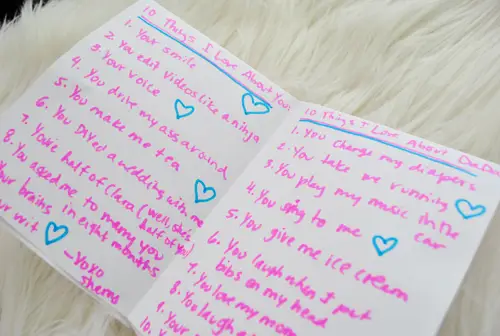 10 Things I Love About You
1. Your smile
2. You edit videos like a ninja
3. Your voice
4. You drive my ass around
5. You make me tea
6. You DIYed a wedding with me
7. You're half of Clara (well she's half of you)
8. You asked me to marry you
Your brains in eight months
wit
-YoYo
10 Things I Love About DaDa
1. You change my diapers
2. You take me running
3. You play my music in the car
4. You sing to me
5. You give me ice cream
6. You laugh when I put
bibs on my head
7. You love my mom
8. You laugh
9. Your
10. Y